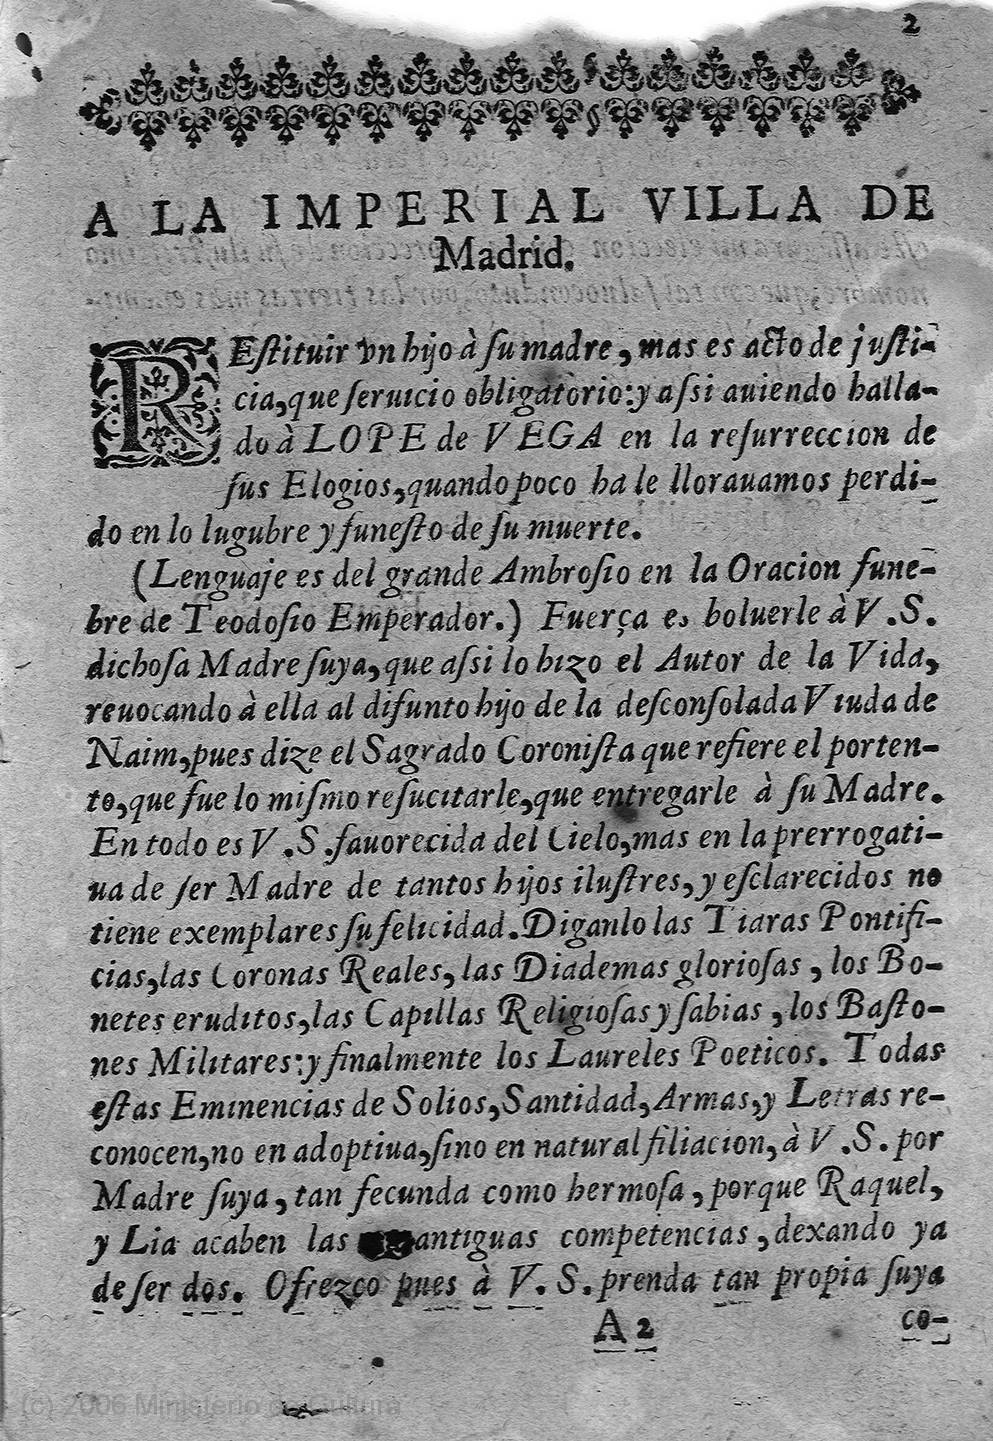 2
A LA IMPERIAL VILLA DE
Madrid.
REſtituir vn hijo à ſu madre, mas es acto de juſti-
cia, que ſeruicio obligatorio: y aſsi auiendo halla-
do à LOPE de VEGA en la reſurreccion de
ſus Elogios, quando poco ha le llorauamos perdi-
do en lo lugubre y funeſto de ſu muerte.
(Lenguaje es del grande Ambroſio en la Oracion fune-
bre de Teodoſio Emperador.) Fuerça es boluerle à V.S.
dichoſa Madre ſuya, que aſsi lo hizo el Autor de la Vida,
reuocando à ella al difunto hijo de la deſconſolada Viuda de
Naim, pues dize el Sagrado Coroniſta que refiere el porten-
to, que fue lo miſmo reſucitarle, que entregarle à ſu Madre.
En todo es V.S. fauorecida del Cielo, mas en la prerrogati-
ua de ſer Madre de tantos hijos iluſtres, y eſclarecidos no
tiene exemplares ſu felicidad. Diganlo las Tiaras Pontifi-
cias, las Coronas Reales, las Diademas glorioſas, los Bo-
netes eruditos, las Capillas Religioſas y ſabias, los Baſto-
nes Militares: y finalmente los Laureles Poeticos. Todas
eſtas Eminencias de Solios, Santidad, Armas, y Letras re-
conocen, no en adoptiua, ſino en natural filiacion, à V.S. por
Madre ſuya, tan fecunda como hermoſa, porque Raquel,
y Lia acaben las antiguas competencias, dexando ya
de ſer dos. Ofrezco pues à V.S. prenda tan propia ſuya
A 2
co-
(c) 2006 Ministerio de Cultura